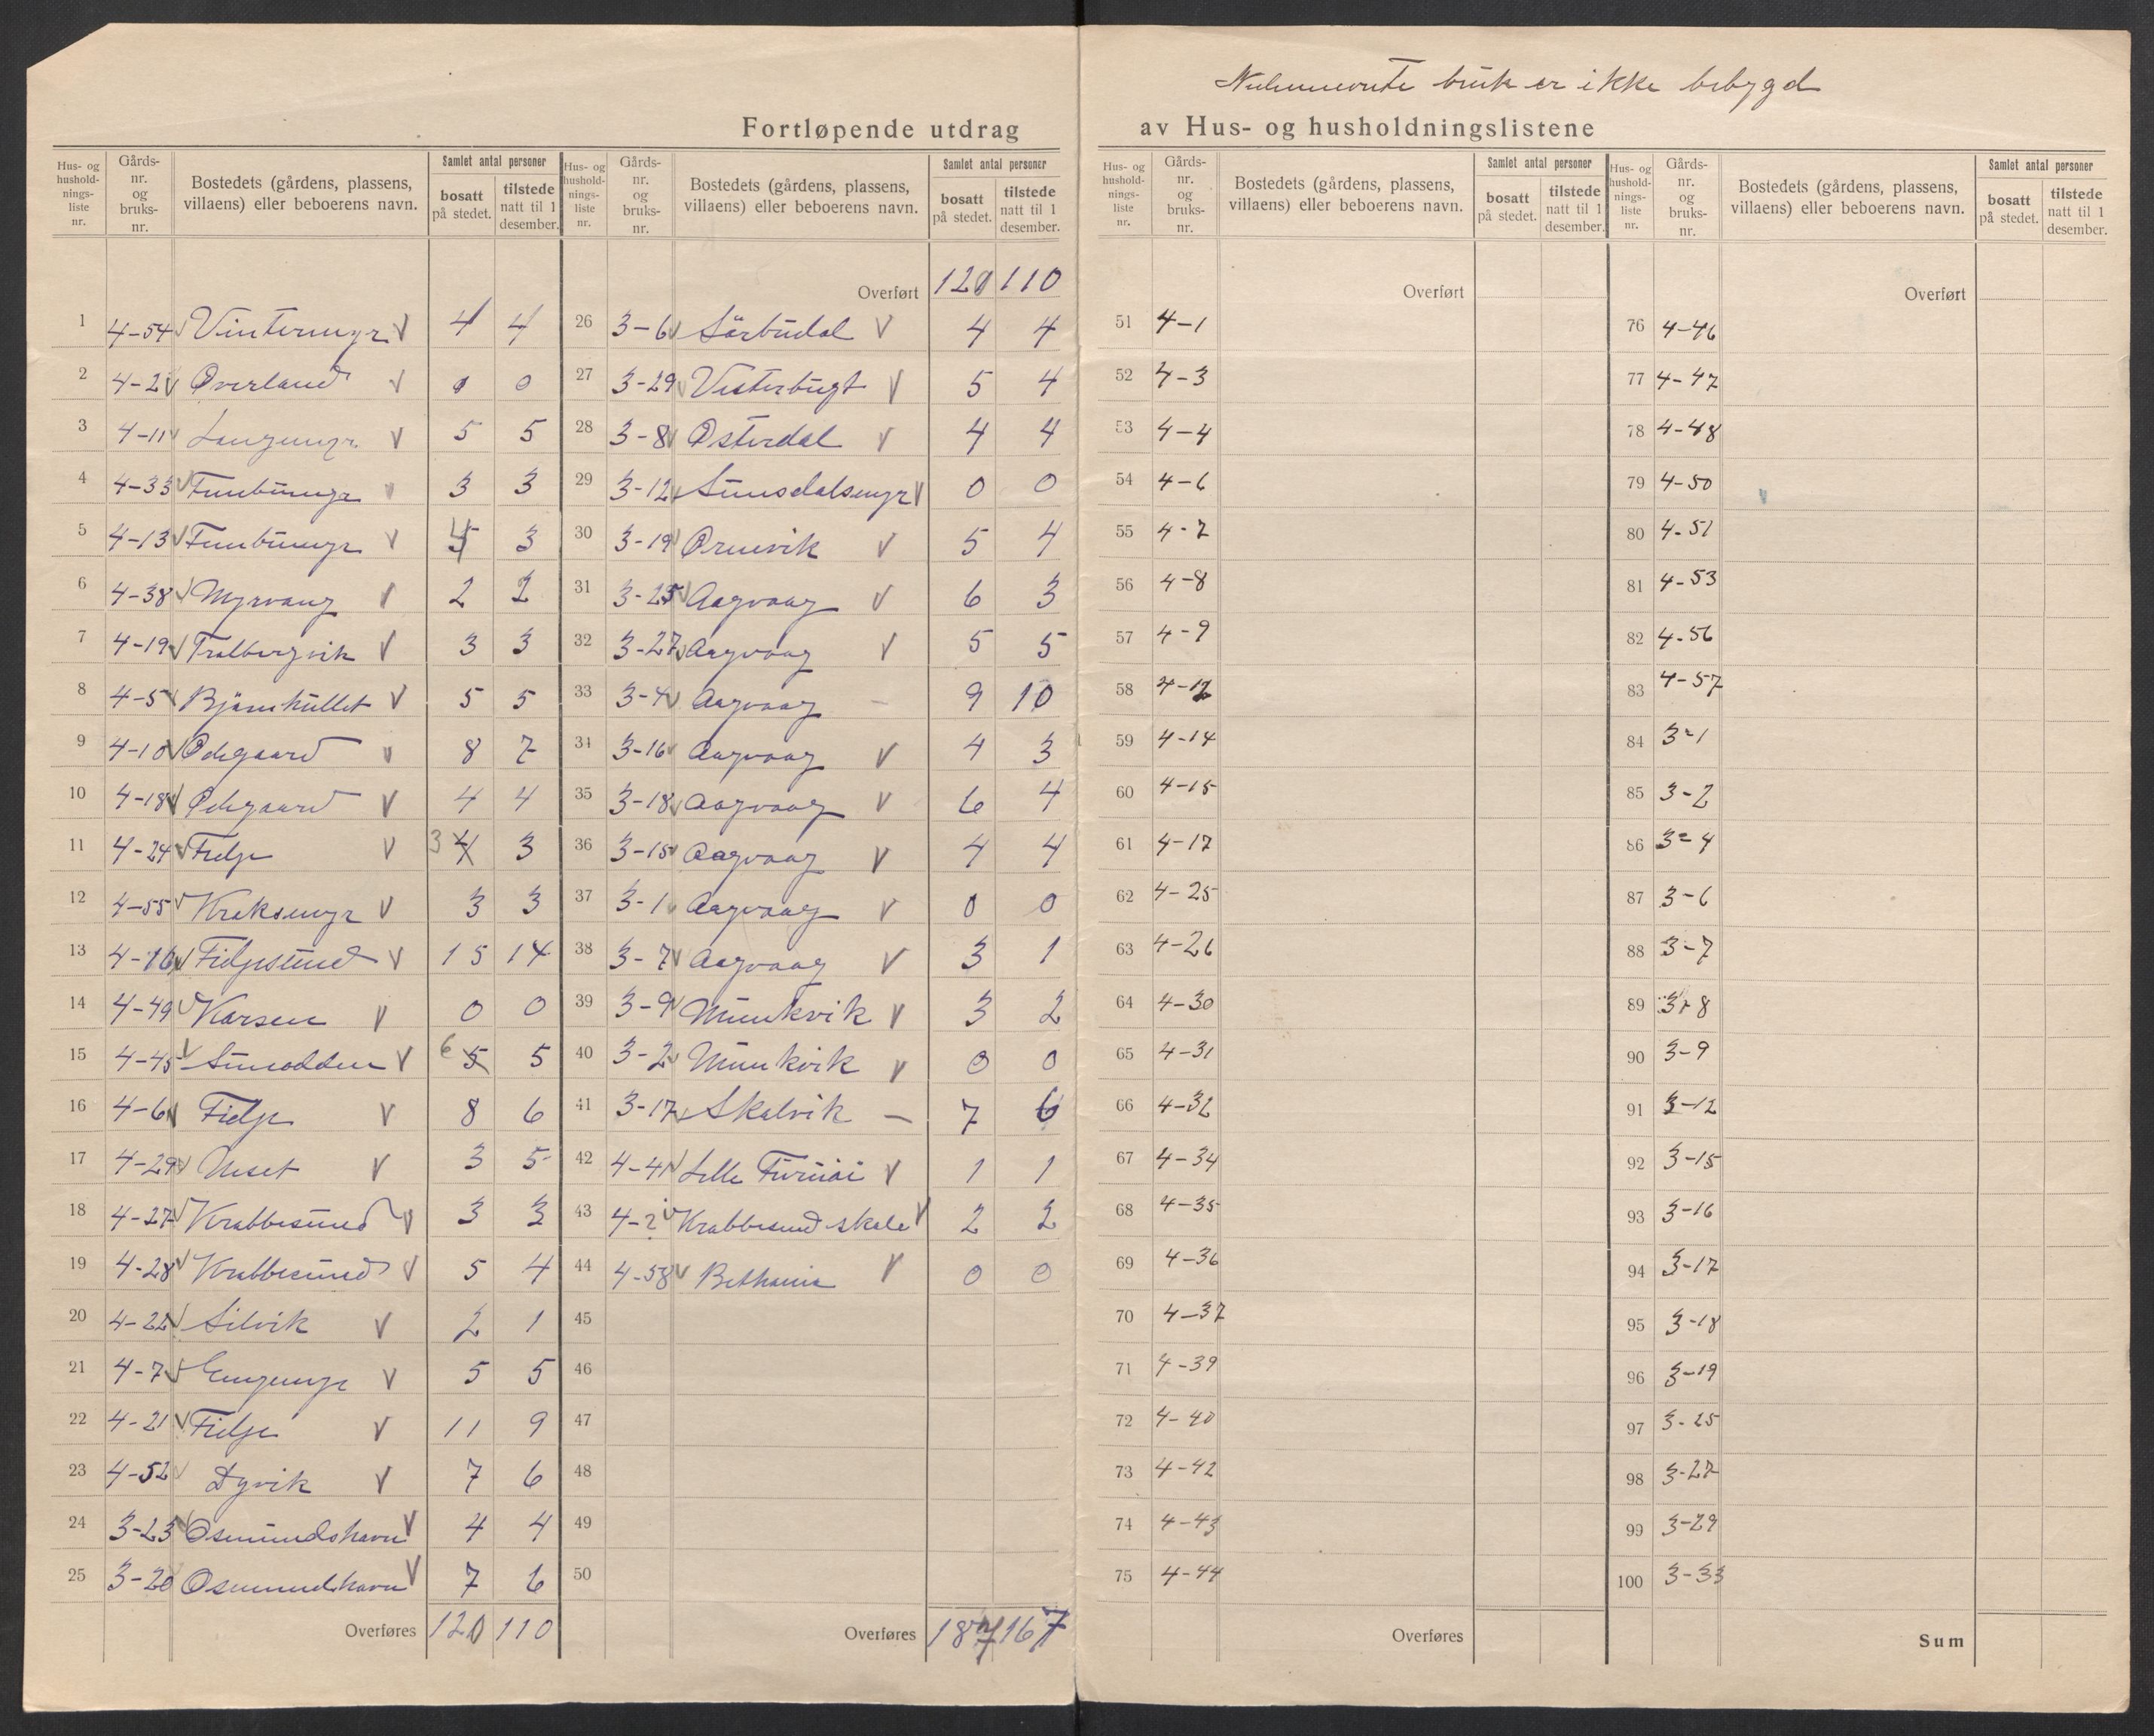 Nedennevnte bruk er ikke bebygd
Fortløpende utdrag av Hus- og husholdningslistene
Hus- og hushold- nings- liste nr. | Gårds- nr. og bruks- nr. | Bostedets (gårdens, plassens, villaens) eller beboerens navn. | Samlet antal personer | bosatt på stedet. | tilstede natt til 1 desember.
1 4-54 Vintermyr 4 4
2 4-2 Øverland 0 0
3 4-11 Langemyr 5 5
4 4-33 3 3
5 4-13 4 3
6 4-38 Myrvang 2 2
7 4-19 Trolbergvik 3 3
8 4-5 Bjørnhullet 5 5
9 4-10 Ødegaard 8 7
10 4-18 Ødegaard 4 4
11 4-24 Fidje 3 4 3
12 4-55 Kraksmyr 3 3
13 4-16 Fidjesund 15 14
14 4-49 Karsen 0 0
15 4-45 Sunodden 6 5 5
16 4-6 Fidje 8 6
17 4-29 Neset 3 5
18 4-27 Krabbesund 3 3
19 4-28 Krabbesund 5 4
20 4-22 Silvik 2 1
21 4-7 Engemyr 5 5
22 4-21 Fidje 11 9
23 4-52 Dyvik 7 6
24 3-23 Osmundshavn 4 4
25 3-20 Osmundshavn 7 6
Overføres 120 110
Hus- og hushold- nings- liste nr. | Gårds- nr. og bruks- nr. | Bostedets (gårdens, plassens, villaens) eller beboerens navn. | Samlet antal personer | bosatt på stedet. | tilstede natt til 1 desember.
Overført 120 110
26 3-6 Sörbudal 4 4
27 3-29 Vesterbugt 5 4
28 3-8 Østerdal 4 4
29 3-12 0 0
30 3-19 Ørnevik 5 4
31 3-25 Aagvaag 6 3
32 3-27 Aagvaag 5 5
33 3-4 Aagvaag – 9 10
34 3-16 Aagvaag 4 3
35 3-18 Aagvaag 6 4
36 3-15 Aagvaag 4 4
37 3-1 Aagvaag 0 0
38 3-7 Aagvaag 3 1
39 3-9 Munkvik 3 2
40 3-2 Munkvik 0 0
41 3-17 Skalvik – 7 6
42 4-41 Lille Furuöi 1 1
43 4-? Krabbesund skole 2 2
44 4-58 Bethania 0 0
45
46
47
48
49
50
Overføres 187 167
Hus- og hushold- nings- liste nr. | Gårds- nr. og bruks- nr. | Bostedets (gårdens, plassens, villaens) eller beboerens navn. | Samlet antal personer | bosatt på stedet. | tilstede natt til 1 desember.
Overført
51 4-1
52 4-3
53 4-4
54 4-6
55 4-7
56 4-8
57 4-9
58 4-12
59 4-14
60 4-15
61 4-17
62 4-25
63 4-26
64 4-30
65 4-31
66 4-32
67 4-34
68 4-35
69 4-36
70 4-37
71 4-39
72 4-40
73 4-42
74 4-43
75 4-44
Overføres
Hus- og hushold- nings- liste nr. | Gårds- nr. og bruks- nr. | Bostedets (gårdens, plassens, villaens) eller beboerens navn. | Samlet antal personer | bosatt på stedet. | tilstede natt til 1 desember.
Overført
76 4-46
77 4-47
78 4-48
79 4-50
80 4-51
81 4-53
82 4-56
83 4-57
84 3-1
85 3-2
86 3-4
87 3-6
88 3-7
89 3-8
90 3-9
91 3-12
92 3-15
93 3-16
94 3-17
95 3-18
96 3-19
97 3-25
98 3-27
99 3-29
100 3-33
Sum